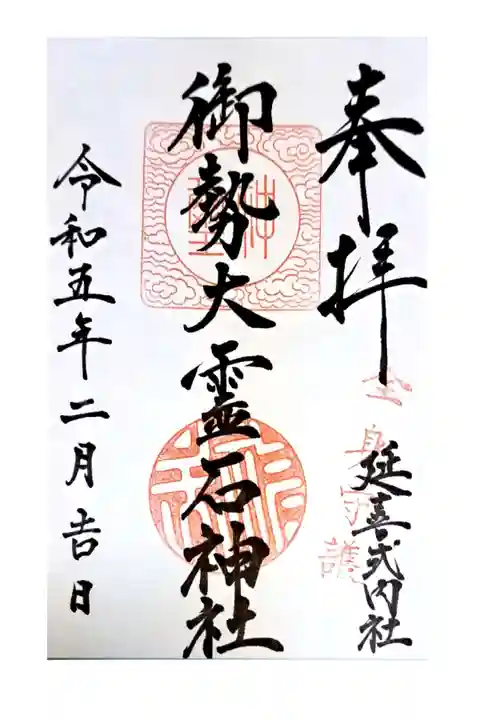 奉拝
延喜式内社
全身守護
御勢大霊石神社
令和五年二月吉日